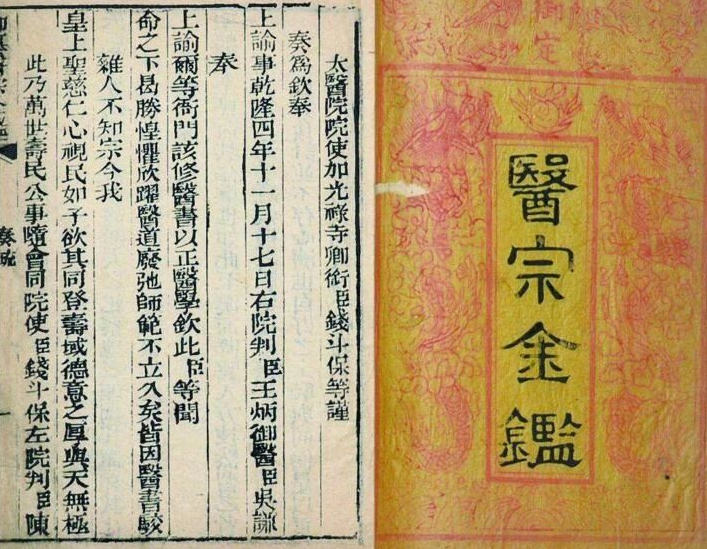 御定
醫宗金鑑
太醫院院使加光祿寺卿銜臣錢斗保等謹
奏為欽奉
上諭事乾隆四年十一月十七日右院判臣王炳御醫臣吳謙
奉
上諭爾等衙門該修醫書以正醫學欽此臣等聞
命之下曷勝惶懼欣躍醫道廢弛師範不立久矣皆因醫書駁
雜人不知宗今我
皇上聖慈仁心視民如子欲其同登壽域德意之厚與天無極
此乃萬世壽民公事隨會同院使臣錢斗保左院判臣陳
奏疏